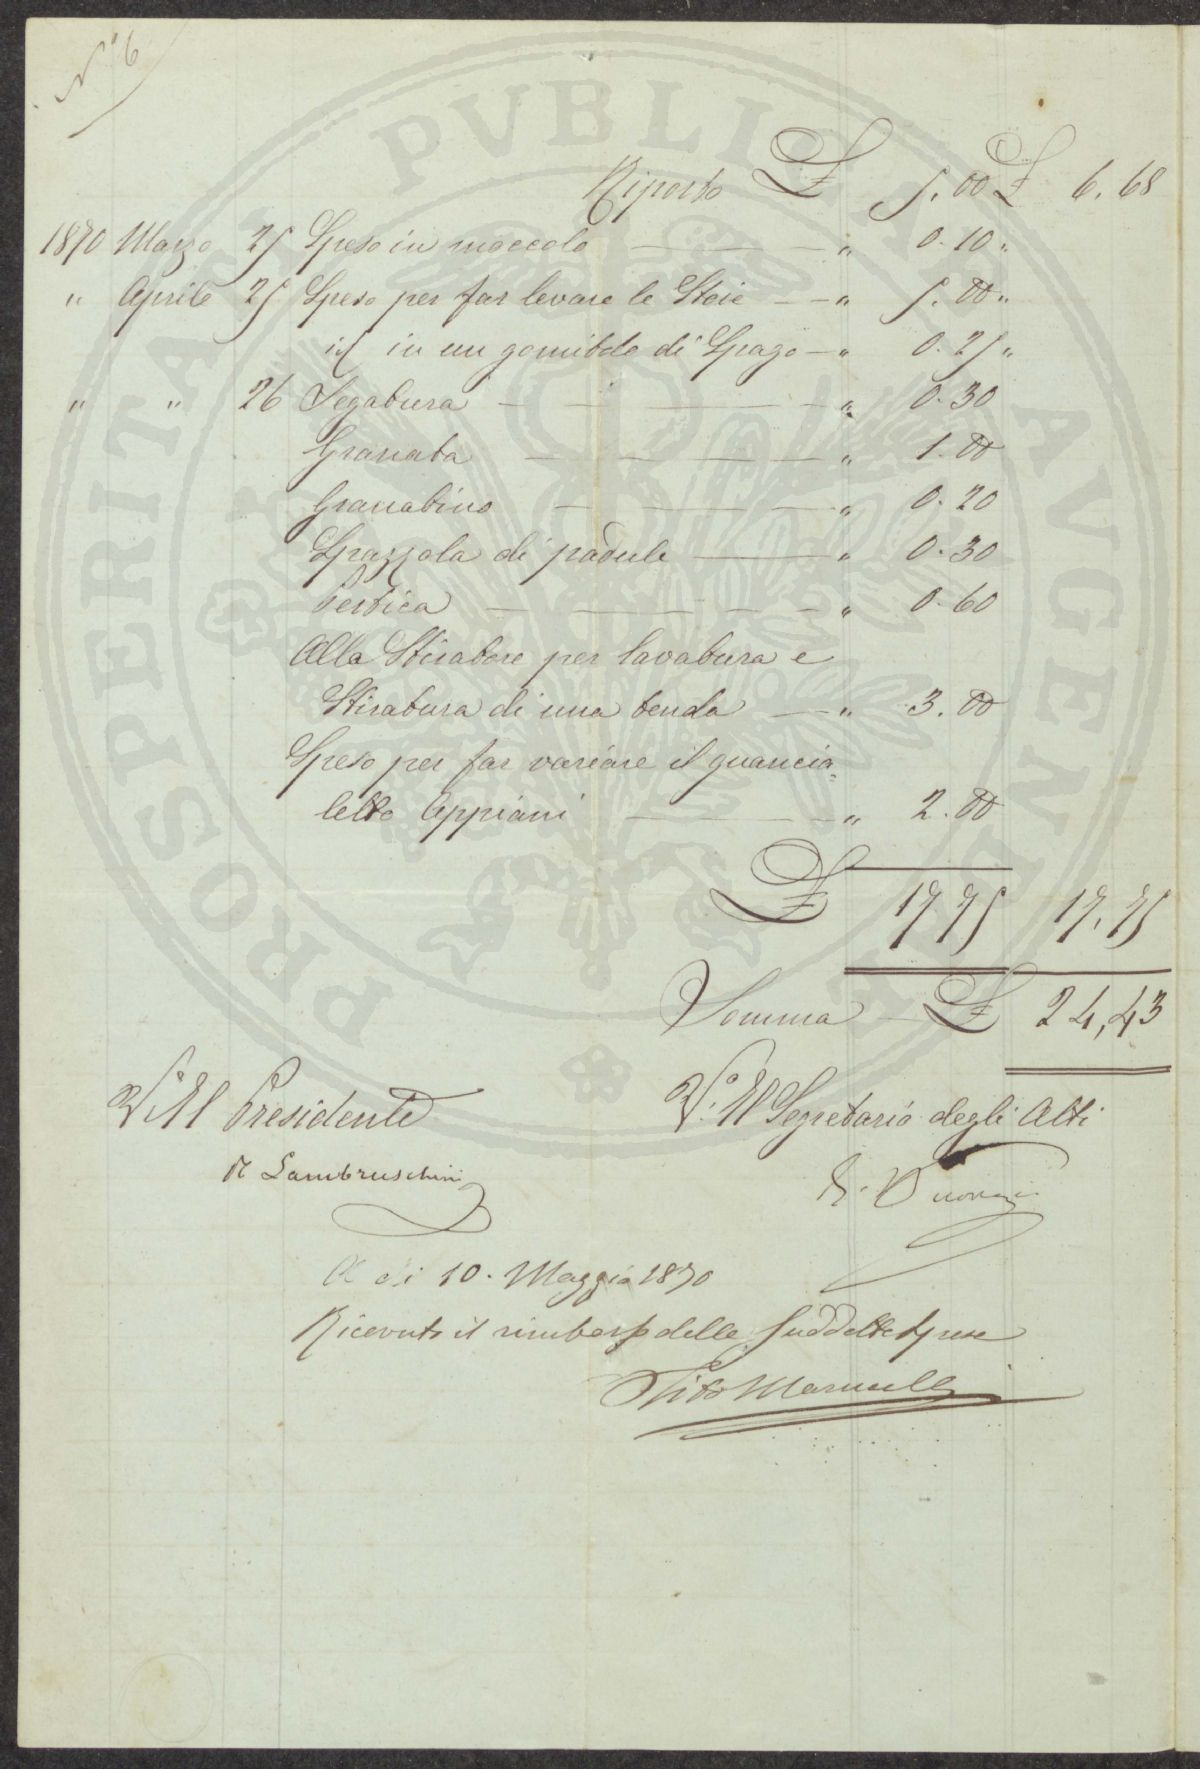 N.º 6
Riporto £ 5.00 £ 6.68
1870 Marzo 25 Speso in moccolo " 0.10 "
" Aprile 25 Speso per far levare le Stoie " 5.00 "
id in un gomitolo di Spago " 0.25 "
" " 26 Segatura " 0.30
Granata " 1.00
Granatino " 0.20
Spazzola di padule " 0.30
Pertica " 0.60
Alla Stiratore per lavatura e
Stiratura di una tenda " 3.00
Speso per far variare il guancia=
letto Appiani " 2.00
£ 17 75 17.75
Somma £ 24,43
V.º Il Presidente
V.º Il Segretario degli Atti
R Lambruschini
A dì 10. Maggio 1870
Ricevuto il rimborso delle suddette spese
Tito Marucelli
PROSPERITATI PVBLICAE AVGENDAE